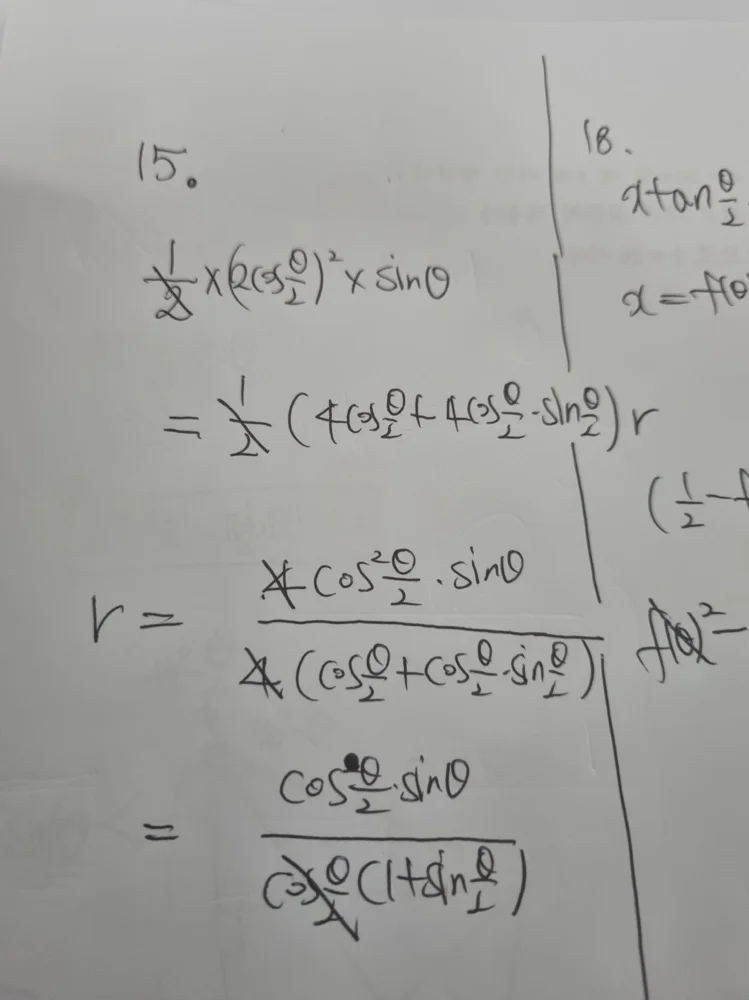 15.
1/2 × (2cos θ/2)² × sinθ
= 1/2 (4cos θ/2 + 4cos θ/2 · sin θ/2) r
r = 4cos² θ/2 · sinθ / 4(cos θ/2 + cos θ/2 · sin θ/2)
= cos θ/2 · sinθ / cos θ/2 (1 + sin θ/2)
18.
x tan θ/2
x = f(θ
(1/2 - f
f(θ)² -